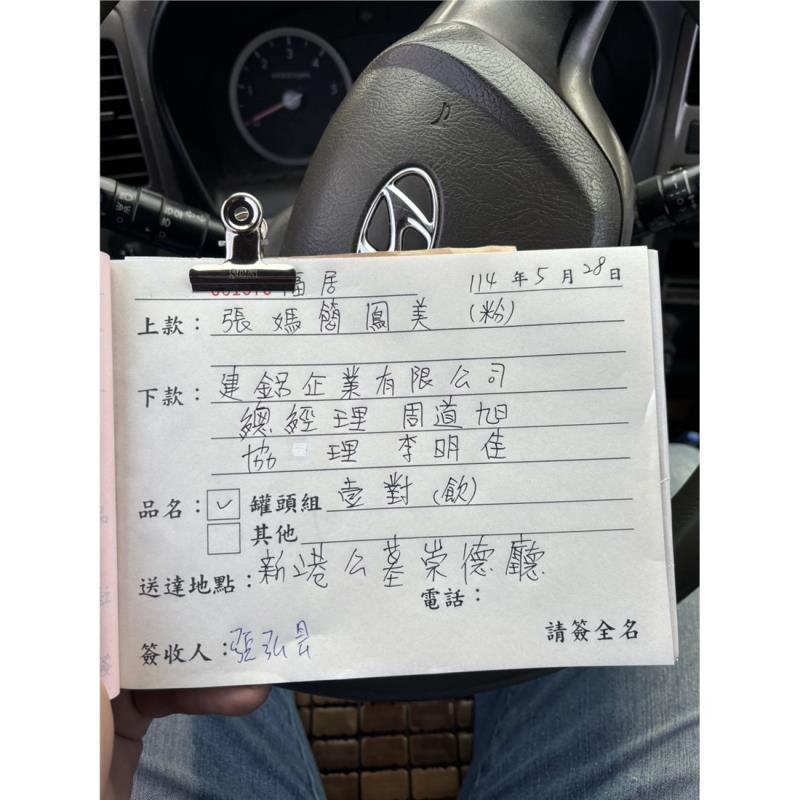 福居 114年5月28日
上款：張媽簡鳳美 (粉)
下款：建鋁企業有限公司
總經理 周道旭
協 理 李明佳
品名：✓ 罐頭組 壹對(飲)
其他
送達地點：新港公墓崇德廳
電話：
簽收人：張弘昌
請簽全名